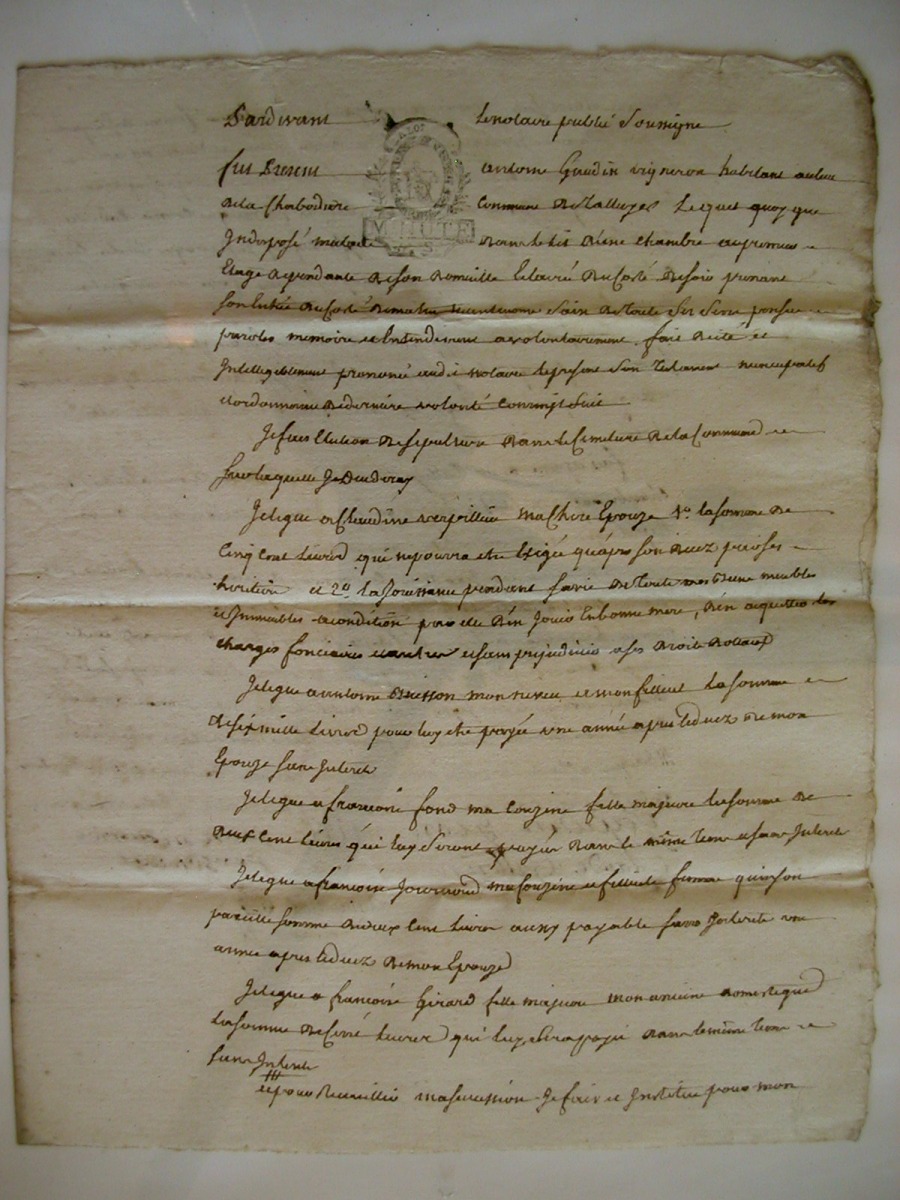 Pardevant le notaire public soussigné
fut present antoine Gaudin vigneron habitant au lieu
de la Chabodiere commune de Taluyes Lequel quoyque
Indisposé malade dans le lit d'une chambre au premier
Etage dependante de son domicille Eclairé du Coté de soir prenant
son Entrée du Coté de matin neantmoins Sain de toute Ses Sens pensée
paroles memoire et Entendement a volontairement fait dicté et
Intelligiblement prononcé audit notaire le present Son Testament nuncupatif
et ordonnance de derniere volonté Comme Suit
Je fais Election de sepulture dans le Cimetiere de la Commune
sur laquelle Je decederay
Je legue a Claudine verpillieu ma Chere Epouze 1o. la somme de
Cinq Cent Livres qui ne pourra etre Exigée qu'apres son decez par ses
heritiers et 2o. la Jouissance pendant sa vie de toute mes biens meubles
et Immeubles a condition par elle d'En Jouir En bonne mere, d'En acquitter les
charges foncieres et autres et sans prejudicier a ses droits dottaux
Je legue a antoine Buisson mon neveu et mon filleul la somme
de six mille Livres pour luy etre payée une année apres le decez de mon
Epouze sans Interets
Je legue a francoise fond ma Couzine fille majeure la somme de
deux Cent Livres qui luy Seront payés dans le même tems et sans Interets
Je legue a francoise Journoud ma Couzine et filleule femme quinson
pareille somme de deux Cent Livres aussy payable sans Interets une
année apres le decez de mon Epouze
Je legue a francoise Girard fille majeure mon ancienne domestique
la somme de Livres qui luy sera payé dans le même tems
sans Interets
et pour Recueillir ma succession Je fais et Institue pour mon
MINUTE